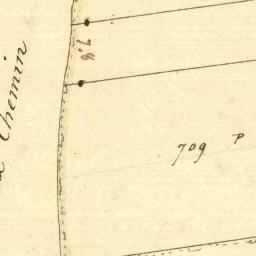 Chemin
7.8
709 P